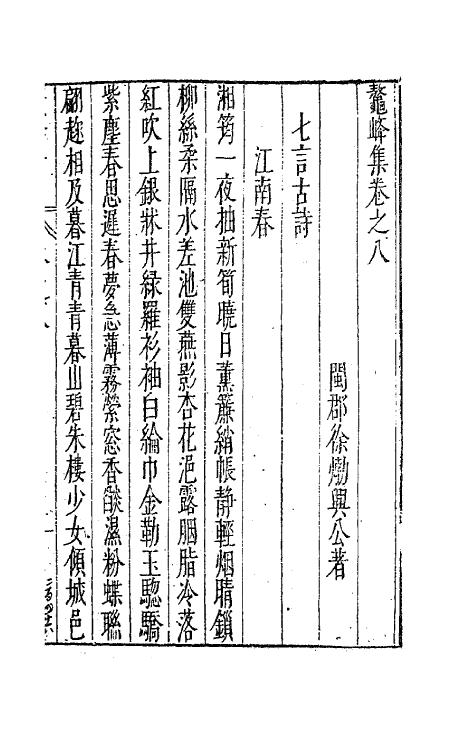 鰲峰集卷之八
閩郡徐𤊹興公著
七言古詩
江南春
湘筠一夜抽新筍曉日薰簾綃帳静輕烟晴鎖
柳絲柔隔水差池雙燕影杏花浥露胭脂冷落
紅吹上銀牀井緑羅衫袖白綸巾金勒玉驄驕
紫塵春思遲春夢急薄霧縈窓香燄濕粉蝶聮
翩趂相及暮江青青暮山碧朱樓少女傾城邑